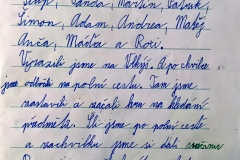 Filip, Vanda, Martin, Patrik,
Šimon, Adam, Andrea, Matěj
Anča, Máťa a Roci.
Vyrazili jsme na Vlkýš. A po chvilce
jsme odbočili na polní cestu. Tam jsme
zastavili a začali hru na hledání
předmětů. Šli jsme po polní cestě
a zachvilku jsme si dali